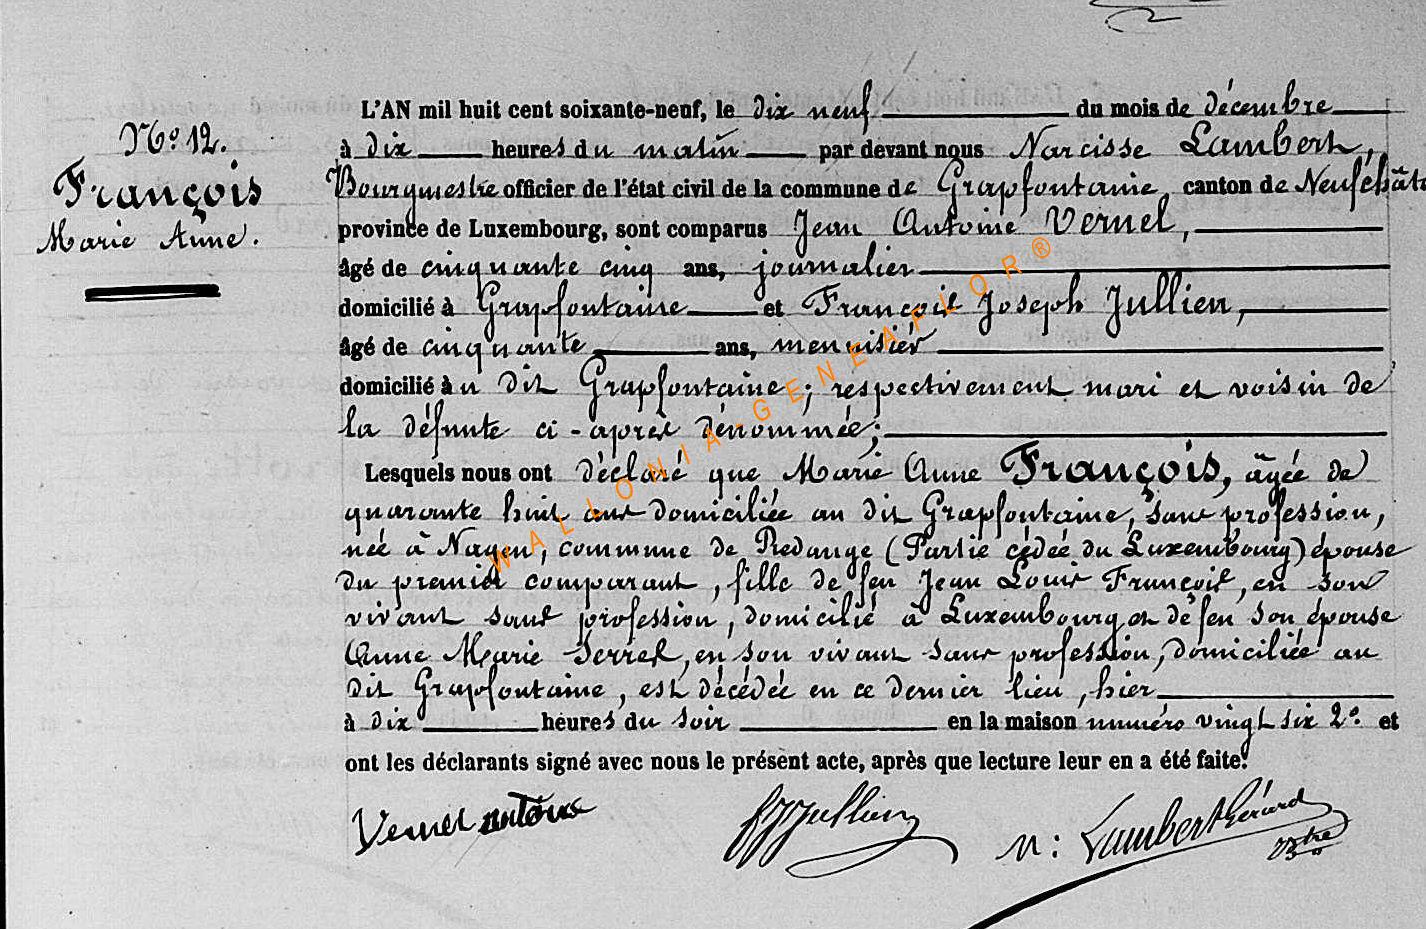 N° 12.
François
Marie Anne.
L'AN mil huit cent soixante-neuf, le dix neuf du mois de décembre
à dix heures du matin par devant nous Narcisse Lambert,
Bourgmestre officier de l'état civil de la commune de Grapfontaine, canton de Neufchâte
province de Luxembourg, sont comparus Jean Antoine Vernel,
âgé de cinquante cinq ans, journalier
domicilié à Grapfontaine et François Joseph Jullien,
âgé de cinquante ans, menuisier
domicilié à u dit Grapfontaine; respectivement mari et voisin de
la défunte ci-après dénommée;
Lesquels nous ont déclaré que Marie Anne François, âgée de
quarante huit ans domiciliée au dit Grapfontaine, sans profession,
née à Nagem, commune de Redange (Partie cédée du Luxembourg) épouse
du premier comparant, fille de feu Jean Louis François, en son
vivant sans profession, domicilié à Luxembourg et de feu son épouse
Anne Marie Serret, en son vivant sans profession, domiciliée au
dit Grapfontaine, est décédée en ce dernier lieu, hier
à dix heures du soir en la maison numéro vingt six 2° et
ont les déclarants signé avec nous le présent acte, après que lecture leur en a été faite.
Vernel antoine
fJJullien
N: Lambert Gérard
Btre
WALLONIA-GENEAFLOR®